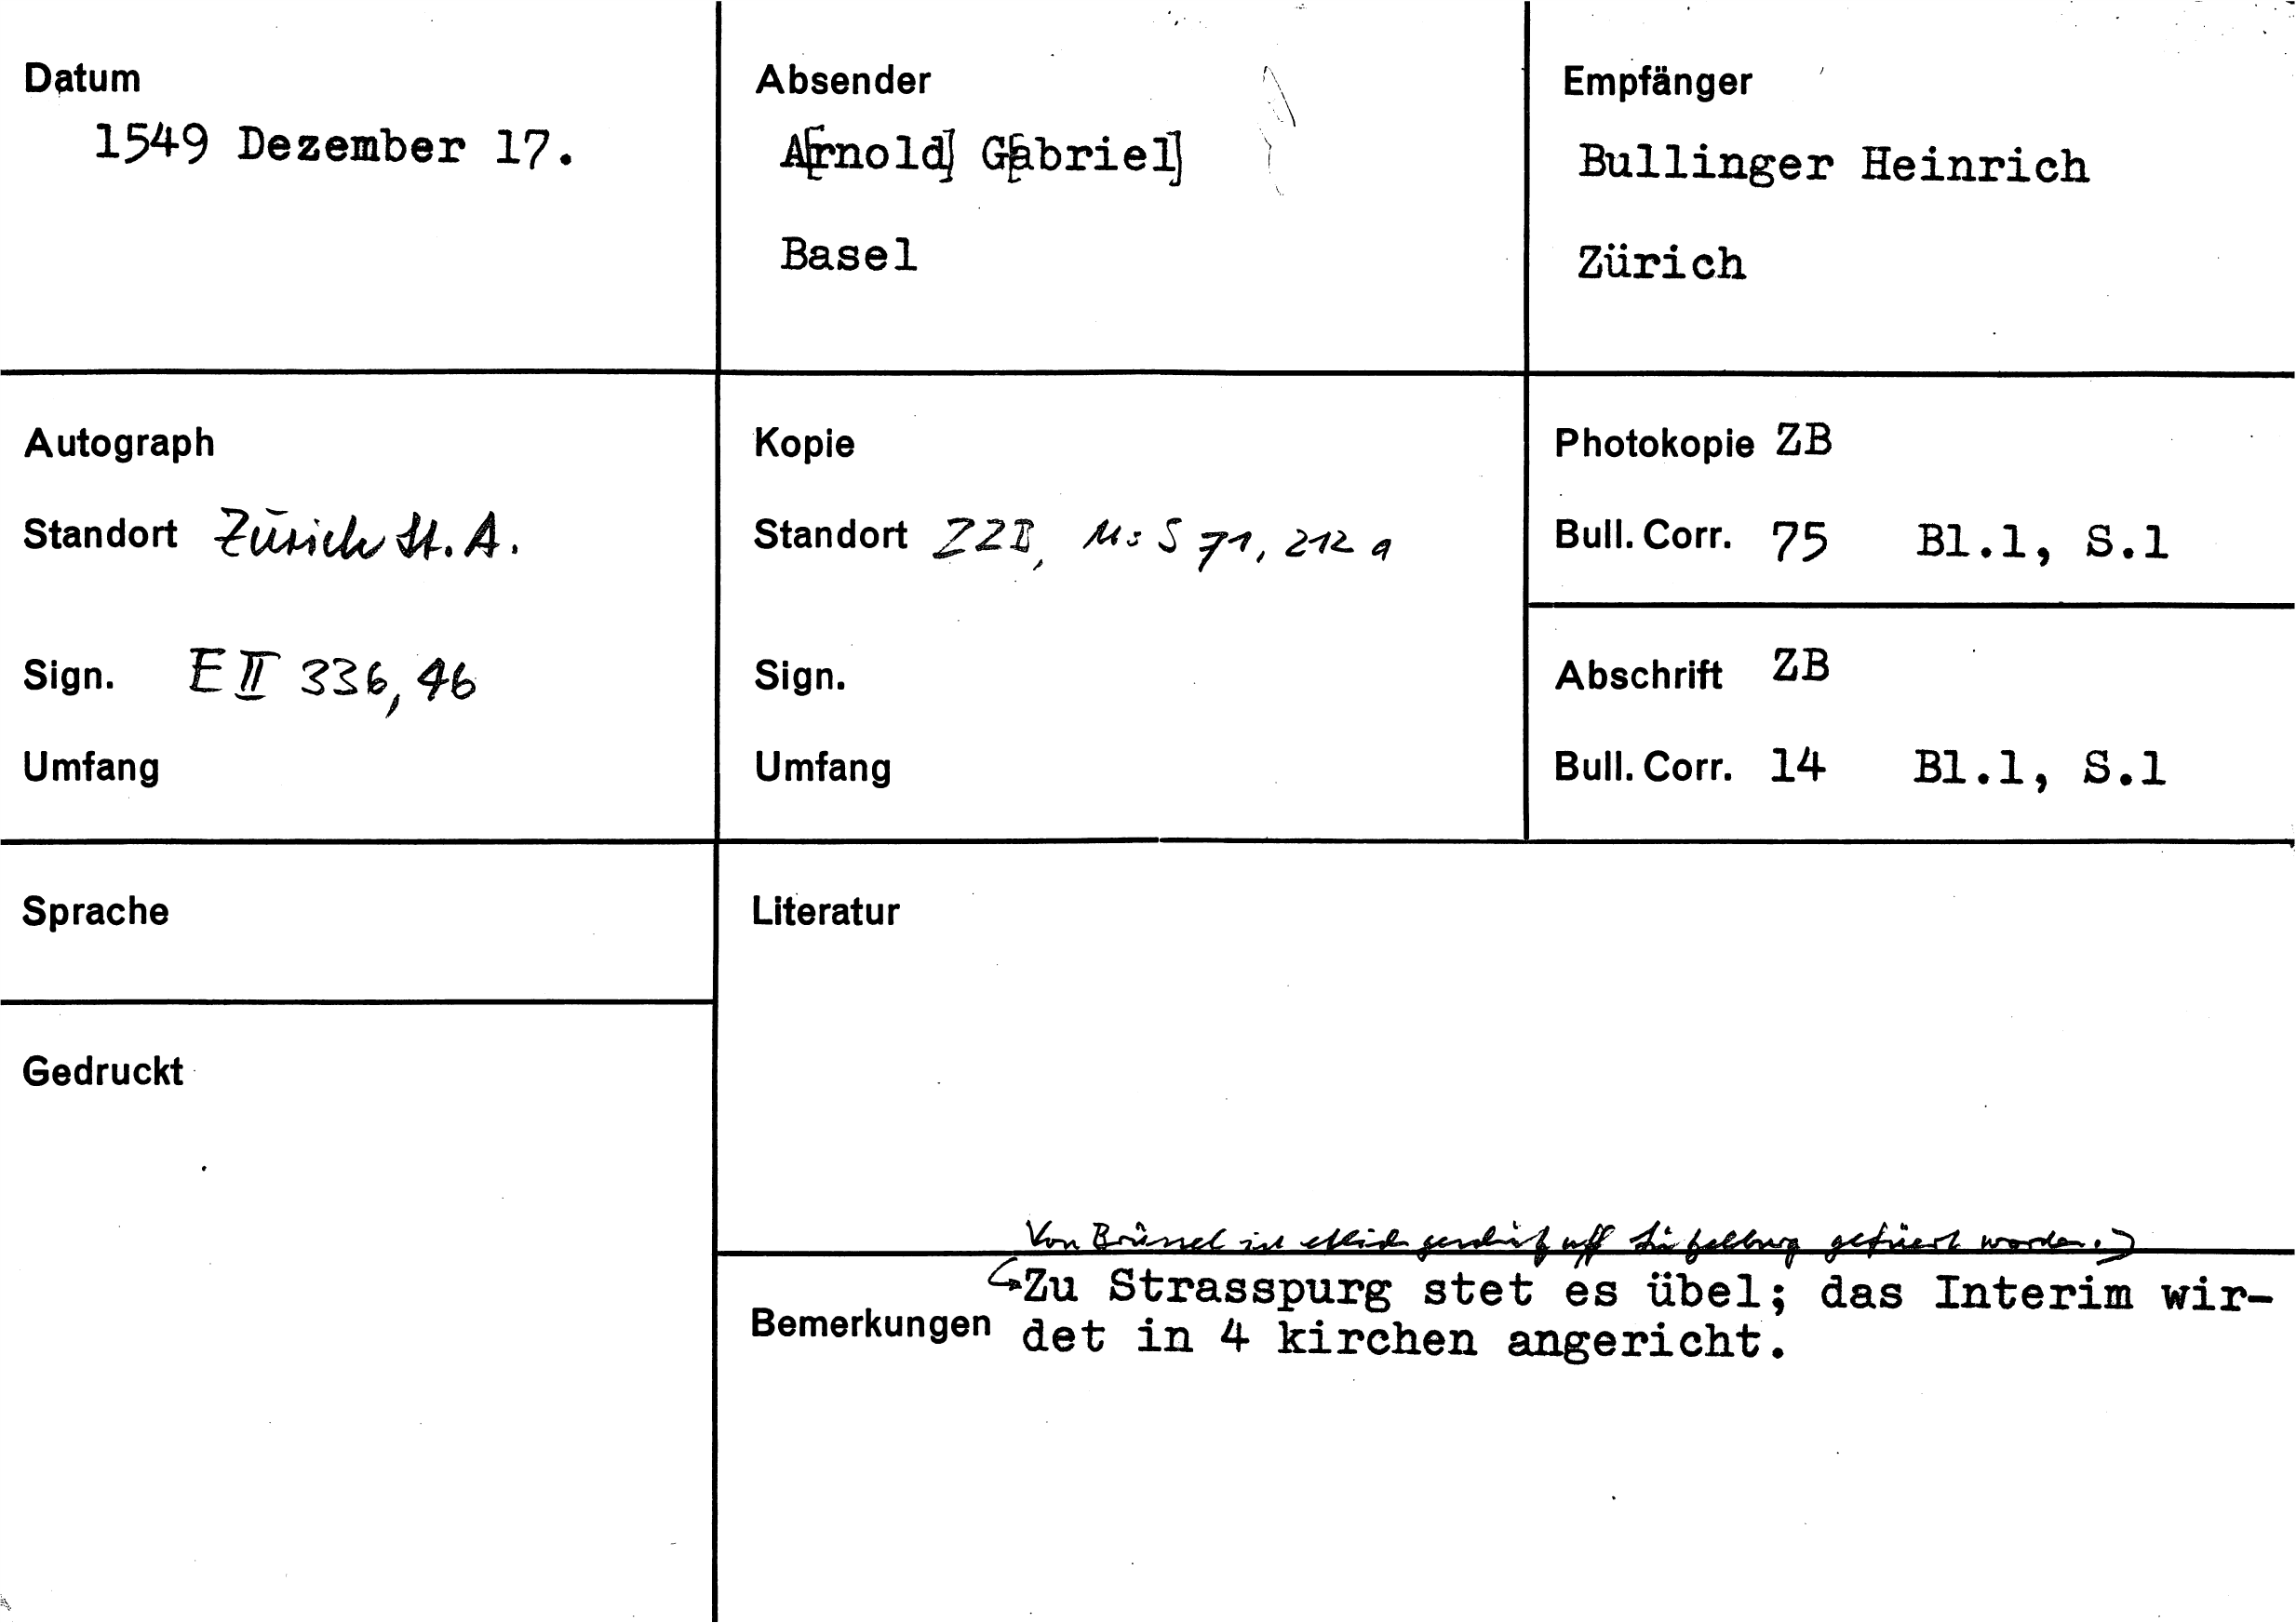 Datum
1549 Dezember 17.
Absender
A[rnold] G[abriel]
Basel
Empfänger
Bullinger Heinrich
Zürich
Autograph
Standort Zürich St. A.
Sign. E II 336, 46
Umfang
Kopie
Standort ZZB, Ms S 71, 212 a
Sign.
Umfang
Photokopie ZB
Bull. Corr. 75 Bl.1, S.1
Abschrift ZB
Bull. Corr. 14 Bl.1, S.1
Sprache
Gedruckt
Literatur
Von Brüssel ist etlich gschütz uff gefüert worden.
Bemerkungen
Zu Strasspurg stet es übel; das Interim wir-
det in 4 kirchen angericht.